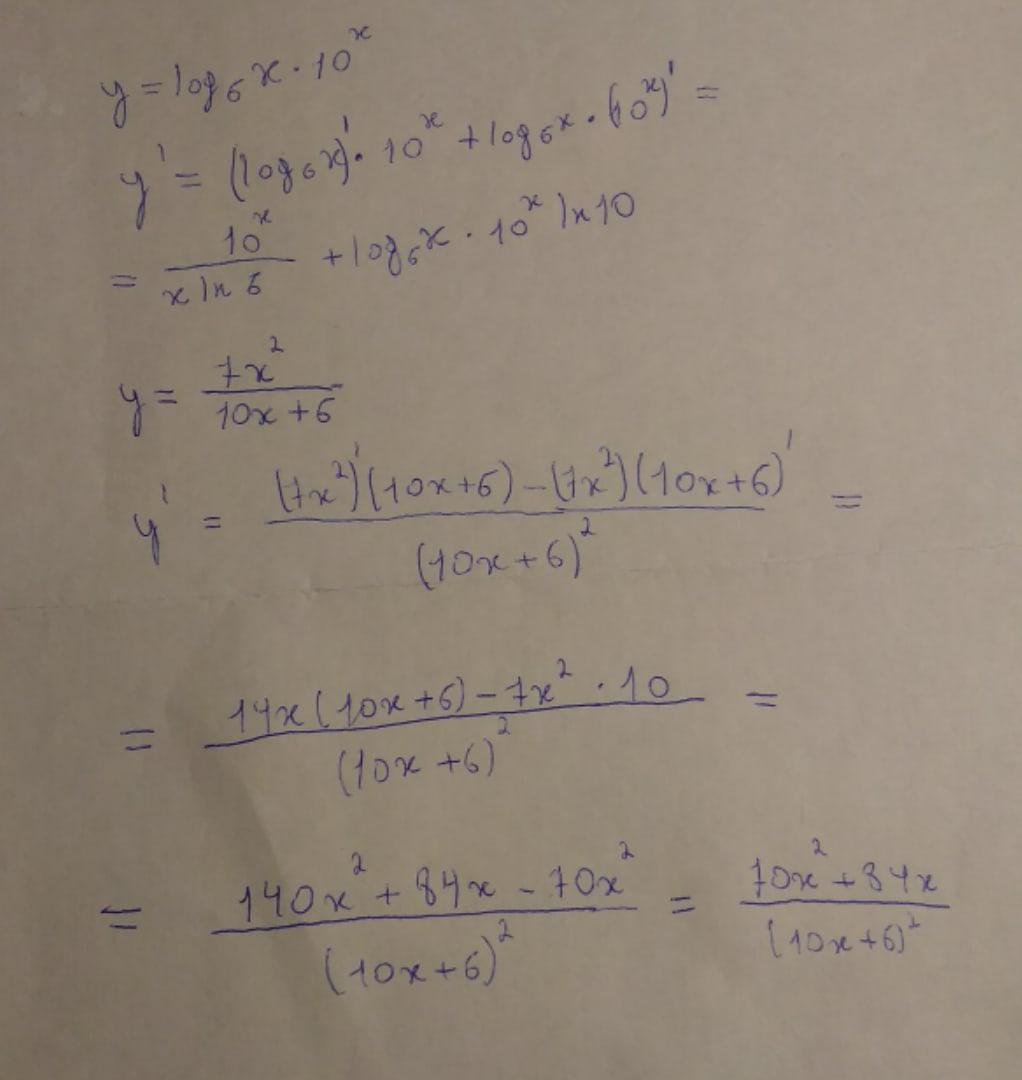 y = log₆x · 10ˣ
y' = (log₆x)' · 10ˣ + log₆x · (10ˣ)' =
= 10ˣ / (x ln 6) + log₆x · 10ˣ ln 10
y = 7x² / (10x + 6)
y' = ((7x²)'(10x+6) - (7x²)(10x+6)') / (10x+6)² =
= (14x(10x+6) - 7x² · 10) / (10x+6)² =
= (140x² + 84x - 70x²) / (10x+6)² = (70x² + 84x) / (10x+6)²